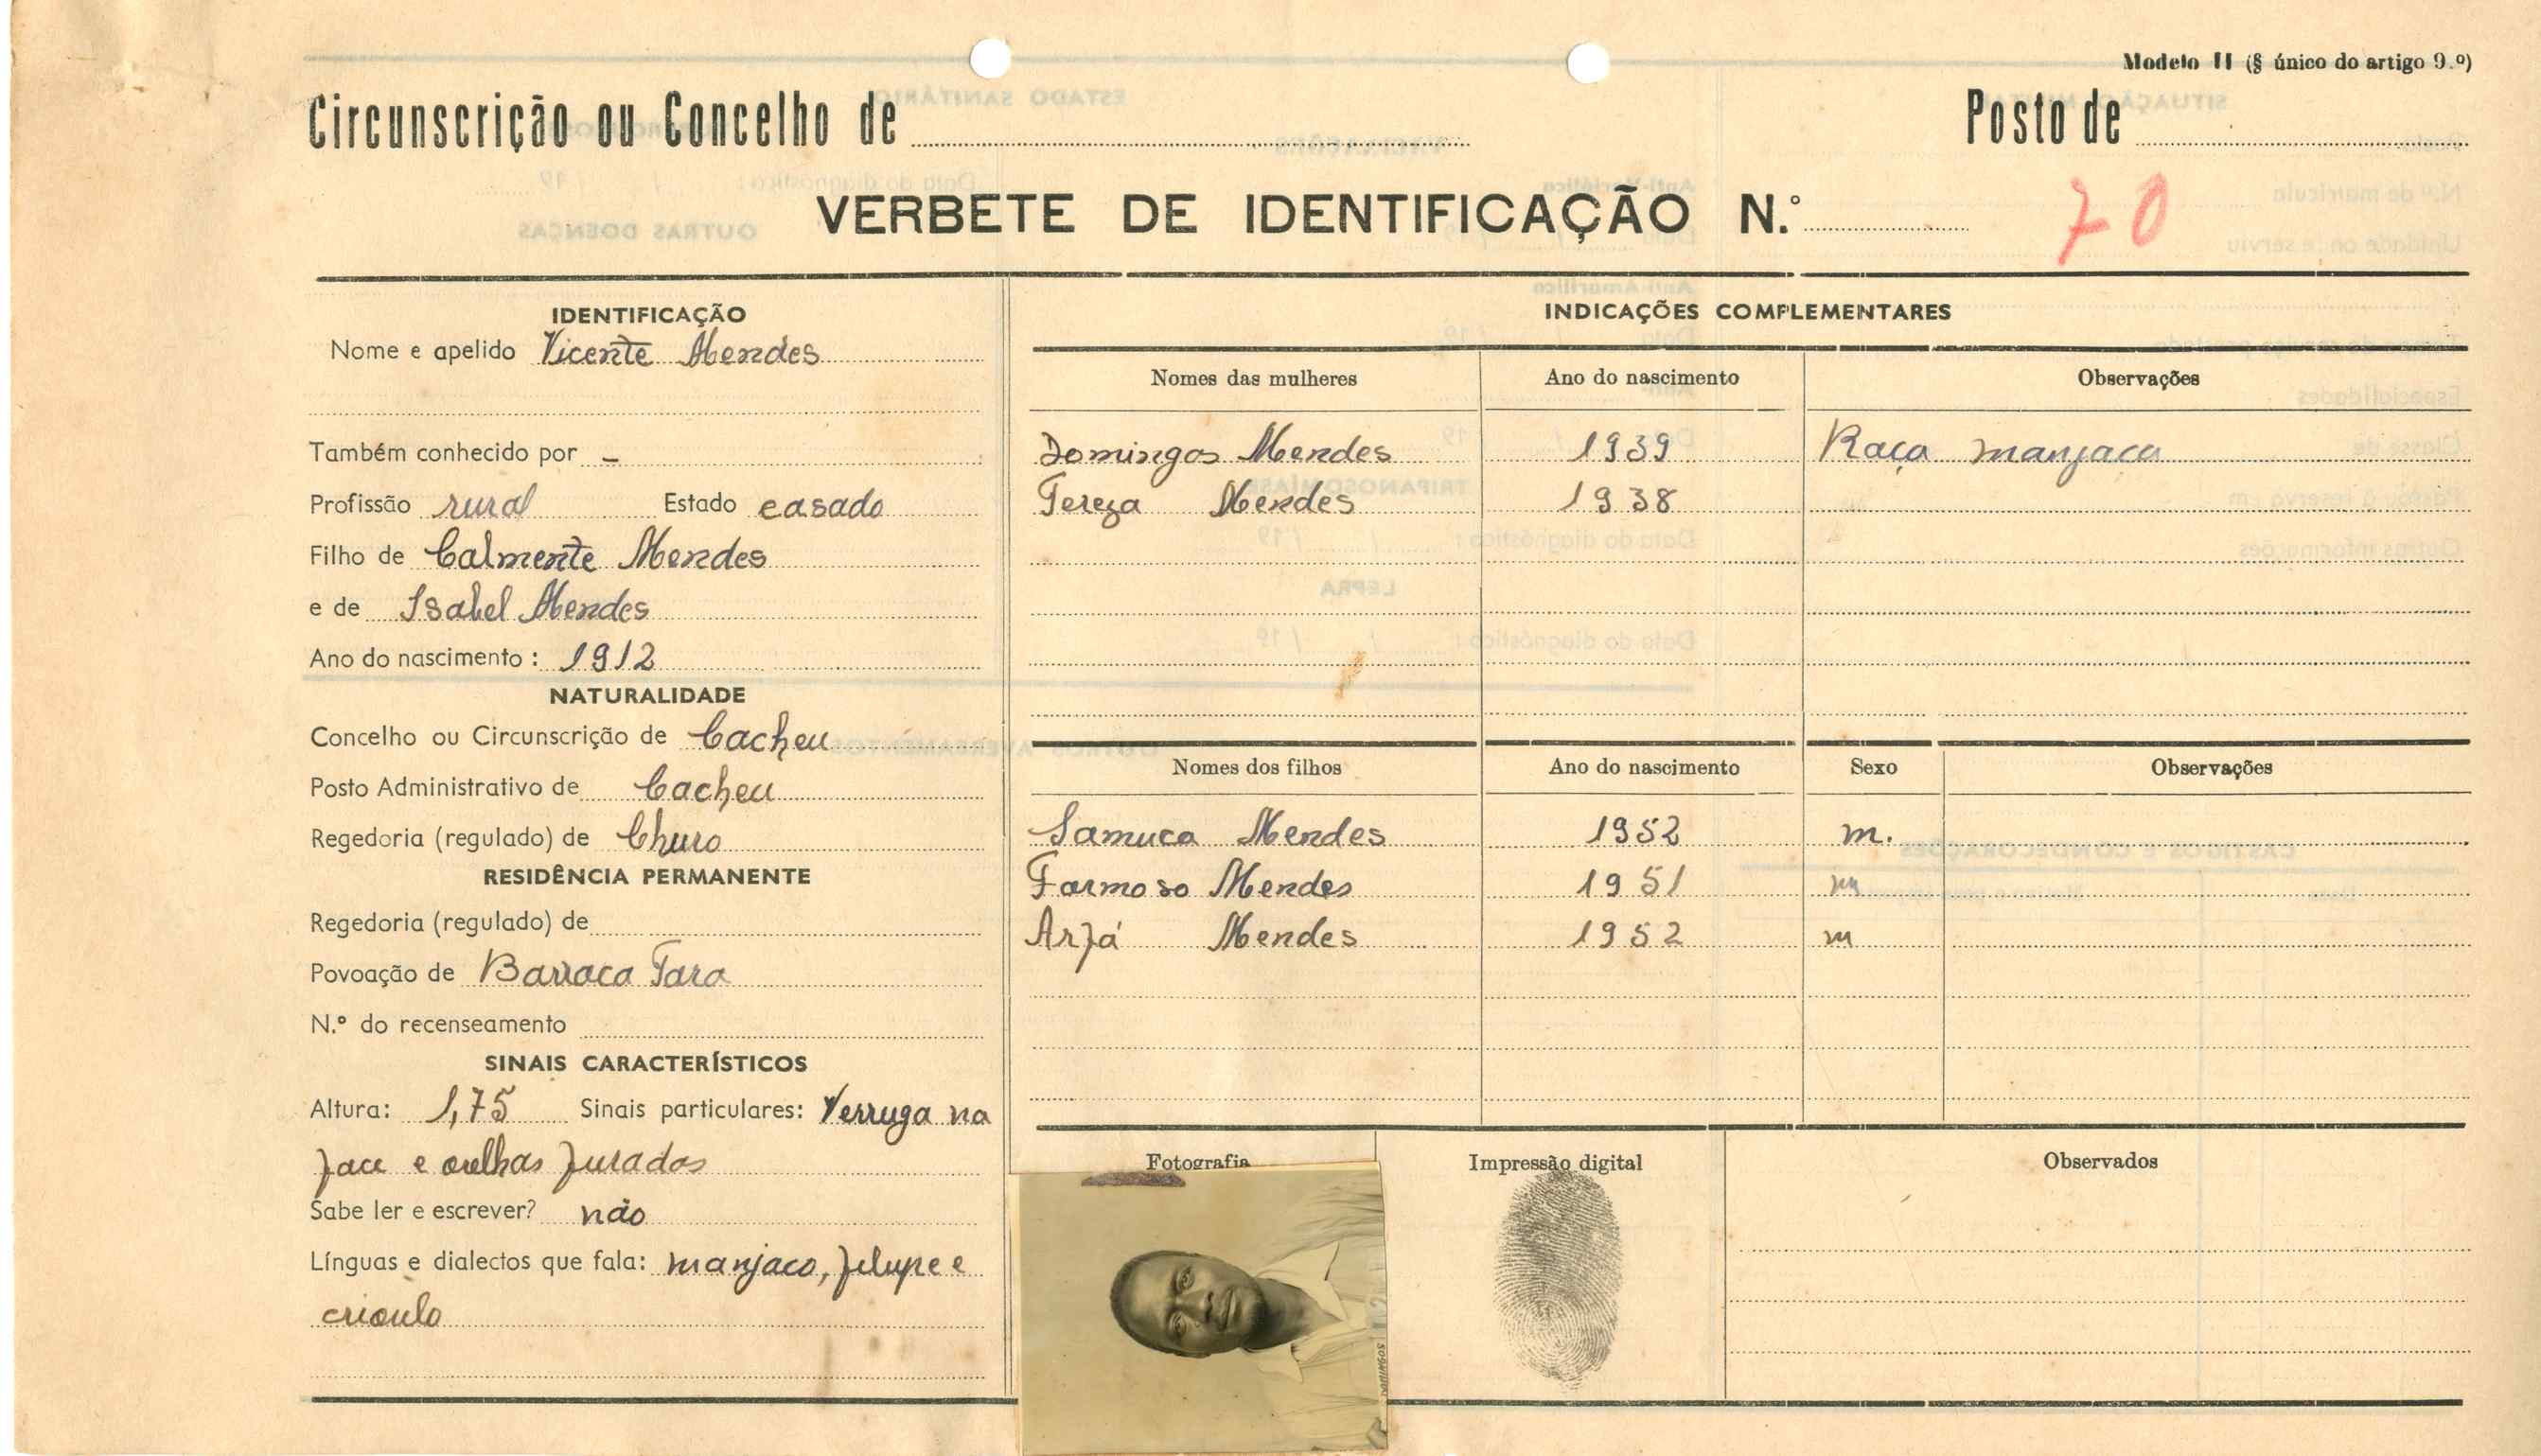 Modelo II (§ único do artigo 9.º)
Circunscrição ou Concelho de
Posto de
VERBETE DE IDENTIFICAÇÃO N.º
70
IDENTIFICAÇÃO
Nome e apelido Vicente Mendes
Também conhecido por –
Profissão rural Estado casado
Filho de Calmente Mendes
e de Isabel Mendes
Ano do nascimento : 1912
NATURALIDADE
Concelho ou Circunscrição de Cacheu
Posto Administrativo de Cacheu
Regedoria (regulado) de Churo
RESIDÊNCIA PERMANENTE
Regedoria (regulado) de
Povoação de Barraca Tara
N.º do recenseamento
SINAIS CARACTERÍSTICOS
Altura: 1,75 Sinais particulares: Verruga na
face e orelhas furadas
Sabe ler e escrever? não
Línguas e dialectos que fala: manjaco, felupe e
crioulo
INDICAÇÕES COMPLEMENTARES
Nomes das mulheres Ano do nascimento Observações
Domingas Mendes 1939 Raça manjaca
Tereza Mendes 1938
Nomes dos filhos Ano do nascimento Sexo Observações
Samuca Mendes 1952 m.
Formoso Mendes 1951 m
Arfá Mendes 1952 m
Fotografia Impressão digital Observados